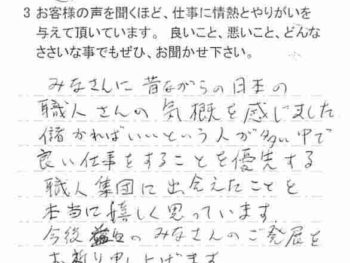 3 お客様の声を聞くほど、仕事に情熱とやりがいを
与えて頂いています。 良いこと、悪いこと、どんな
ささいな事でもぜひ、お聞かせ下さい。
みなさんに 昔ながらの日本の
職人さんの気概を感じました
儲かればいいという人が多い中で
良い仕事をすることを優先する
職人集団に出会えたことを
本当に嬉しく思っています。
今後 のみなさんのご発展を
お祈り申し上げます